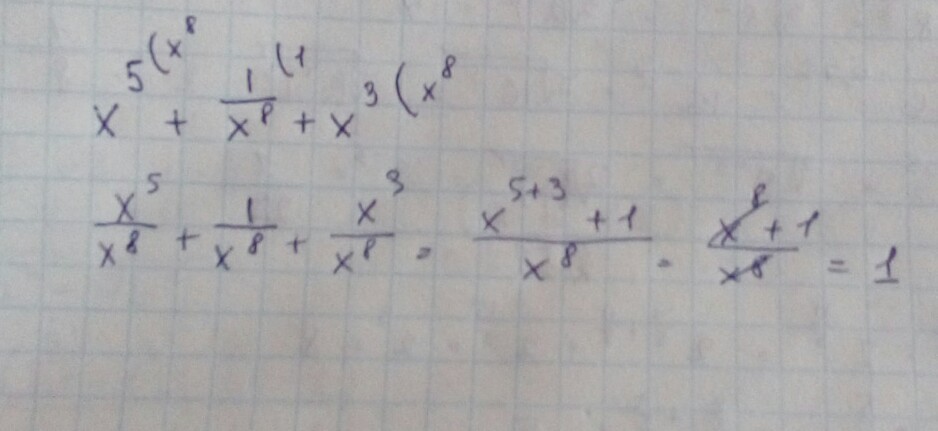 x^5 (x^8 + 1/x^8 (1 + x^3 (x^8
x^5/x^8 + 1/x^8 + x^3/x^8 = (x^{5+3} + 1)/x^8 = (x^8 + 1)/x^8 = 1